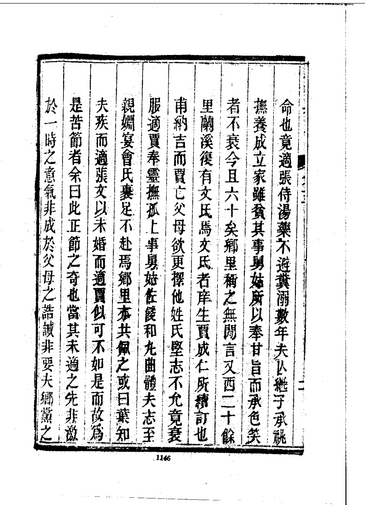 命也竟適張侍湯藥不避糞溺數年夫亾繼子承祧
撫養成立家雖貧其事舅姑所以奉甘旨而承色笑
者不衰今且六十矣鄉里稱之無閒言又西二十餘
里蘭溪復有文氏焉文氏者庠生賈成仁所續訂也
甫納吉而賈亡父母欲更擇他姓氏堅志不允竟衰
服適賈奉靈撫孤上事舅姑佐饔和丸曲體夫志至
親婣宴會氏裹足不赴焉鄉里亦共佩之或曰葉知
夫疾而適張文以未婚而適賈似可不如是而故為
是苦節者余曰此正節之奇也當其未適之先非激
於一時之意氣非成於父母之誥誡非要夫鄉黨之
二
1146